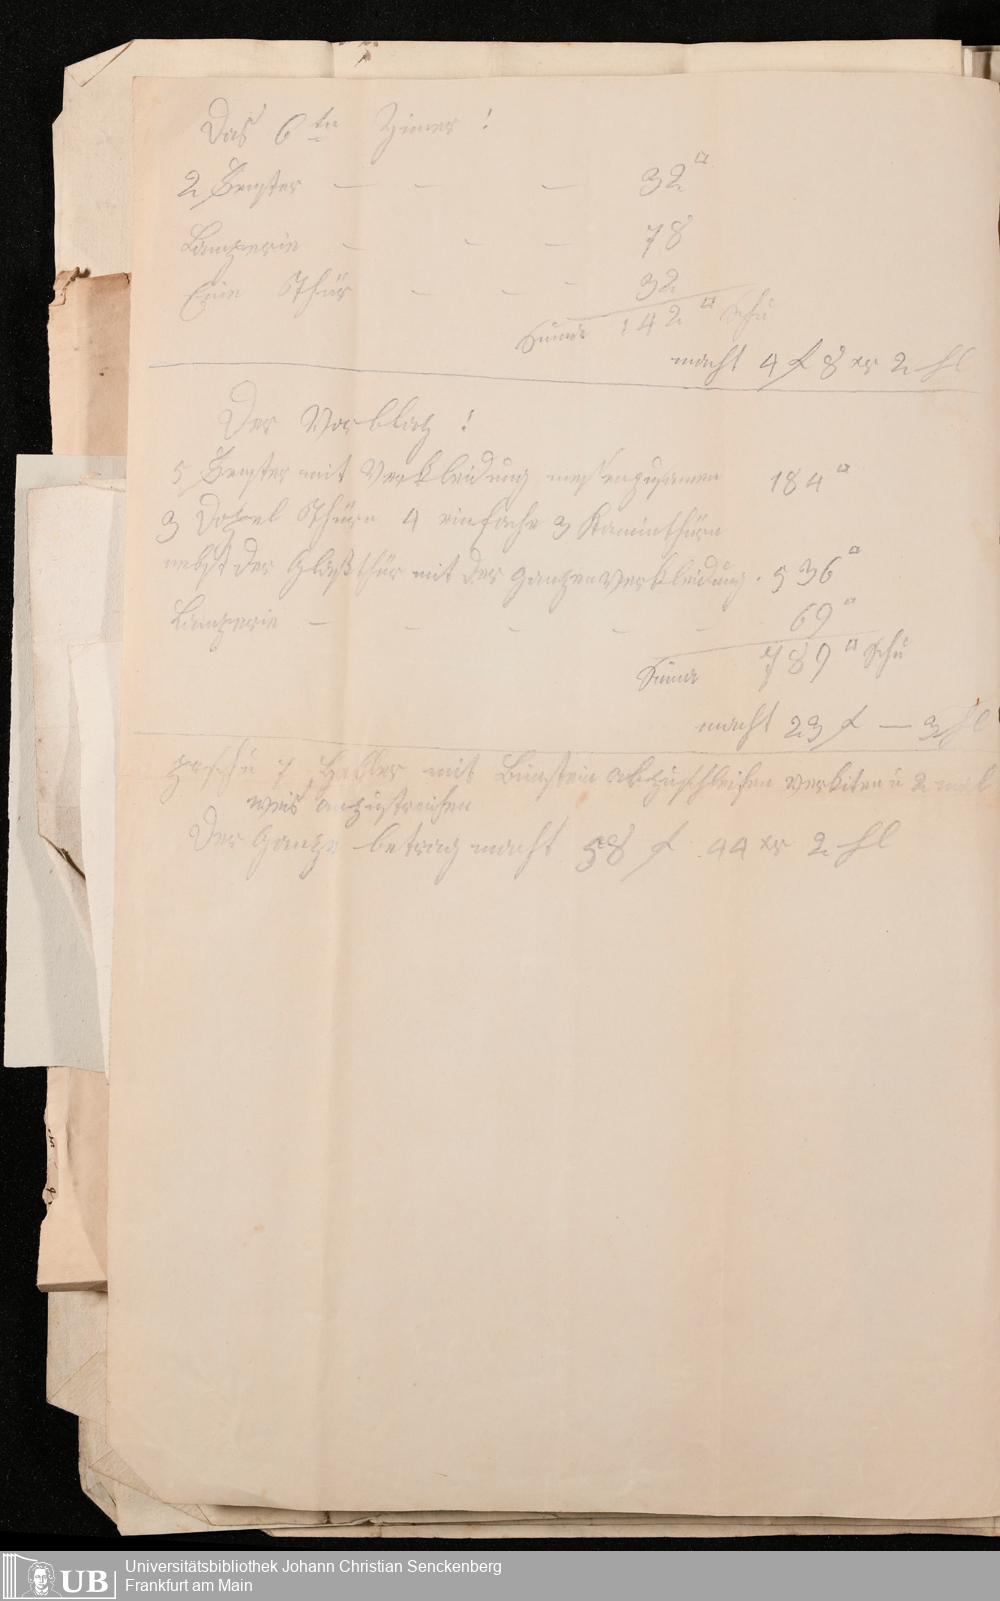 Das 6te Zimer !
2 Fenster — — — 32□
Lamperie — — — 78
Eine Thür — — — 32
Suma 142□ Schu
macht 4 f 8 xr 2 hl
Der Vorblatz !
5 Fenster mit Verkleidung messen zusamen 184□
3 Dopel Thürn 4 einfache 3 Kaminthürn
nebst der Glaßthür mit der ganzen Verkleidung . 536□
Lamperie — — — — — 69□
Suma 789□ Schu
macht 23 f — 3 hl
pr schu 7 Haller mit Bimstein abzuschleifen verkiten u 2 mal
weis anzustreichen
Der Ganze betrag macht 58 f 44 xr 2 hl
UB
Universitätsbibliothek Johann Christian Senckenberg
Frankfurt am Main